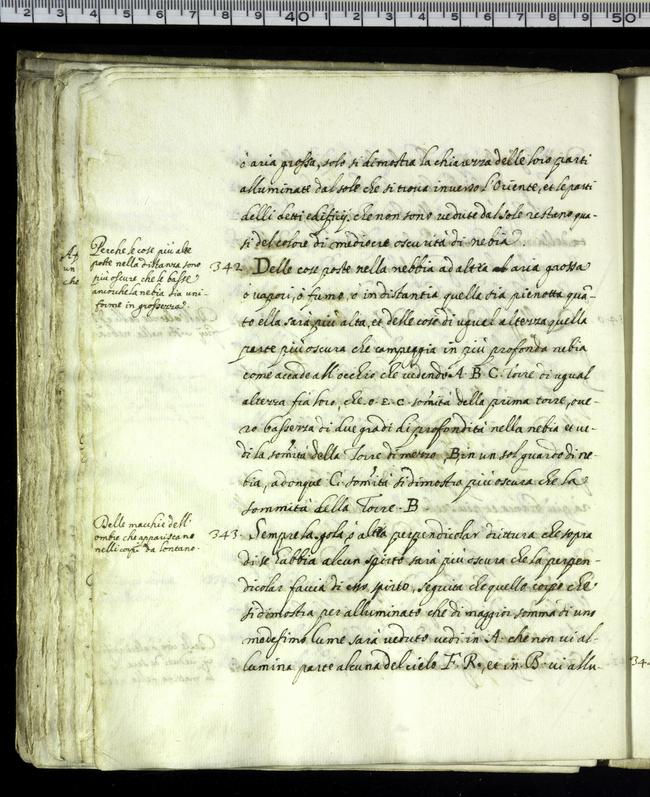 ò aria grossa, solo si dimostra la chiarezza delle loro parti
alluminate dal sole che si trova inverso l'Oriente, et le parti
delli detti edificij, che non sono vedute dal Sole restano qua-
si del colore di mediocre oscurità di nebia.
Perche le cose più alte
poste nella distanza sono
più oscure che le basse
anchorche la nebia sia uni-
forme in grossezza.
342 Delle cose poste nella nebbia ad altra aria grossa
ò vapori, ò fumo, ò in distantia quella fia più notta quã-
to ella sarà più alta, et delle cose di ugual altezza quella
parte più oscura che campeggia in più profonda nebia
come accade all'occhio che vedendo A. B. C. Torre di ugual
altezza frà loro, che C. somità della prima torre, ove-
ro bassezza di due gradi di profondità nella nebia et ve-
di la somità della Torre di mezzo, B in un sol guardo di ne-
bia, adonque C. somità si dimostra più oscura che la
sommità della Torre. B.
Delle macchie dell'
ombre che appariscano
nelli corpi da lontano.
343. Sempre la gola, ò altra perpendicolar drittura che sopra
di se habbia alcun sporto sarà più oscura che la perpen-
dicolar faccia di esso sporto, seguita che quello corpo che
si dimostra per alluminato che di maggior somma di uno
medesimo lume sarà veduto vedi in A. che non vi al-
lumina parte alcuna del cielo F. R., et in B. vi allu-